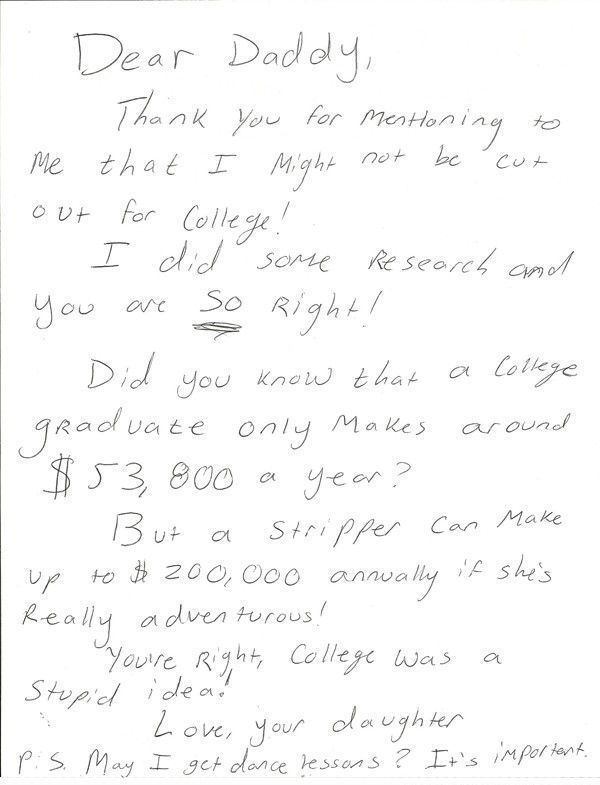 Dear Daddy,
Thank you for mentioning to
me that I might not be cut
out for College!
I did some Research and
you are so Right!
Did you know that a College
graduate only makes around
$53,800 a year?
But a stripper can make
up to $200,000 annually if she's
Really adventurous!
You're Right, College was a
stupid idea!
Love, your daughter
P.S. May I get dance lessons? It's important.